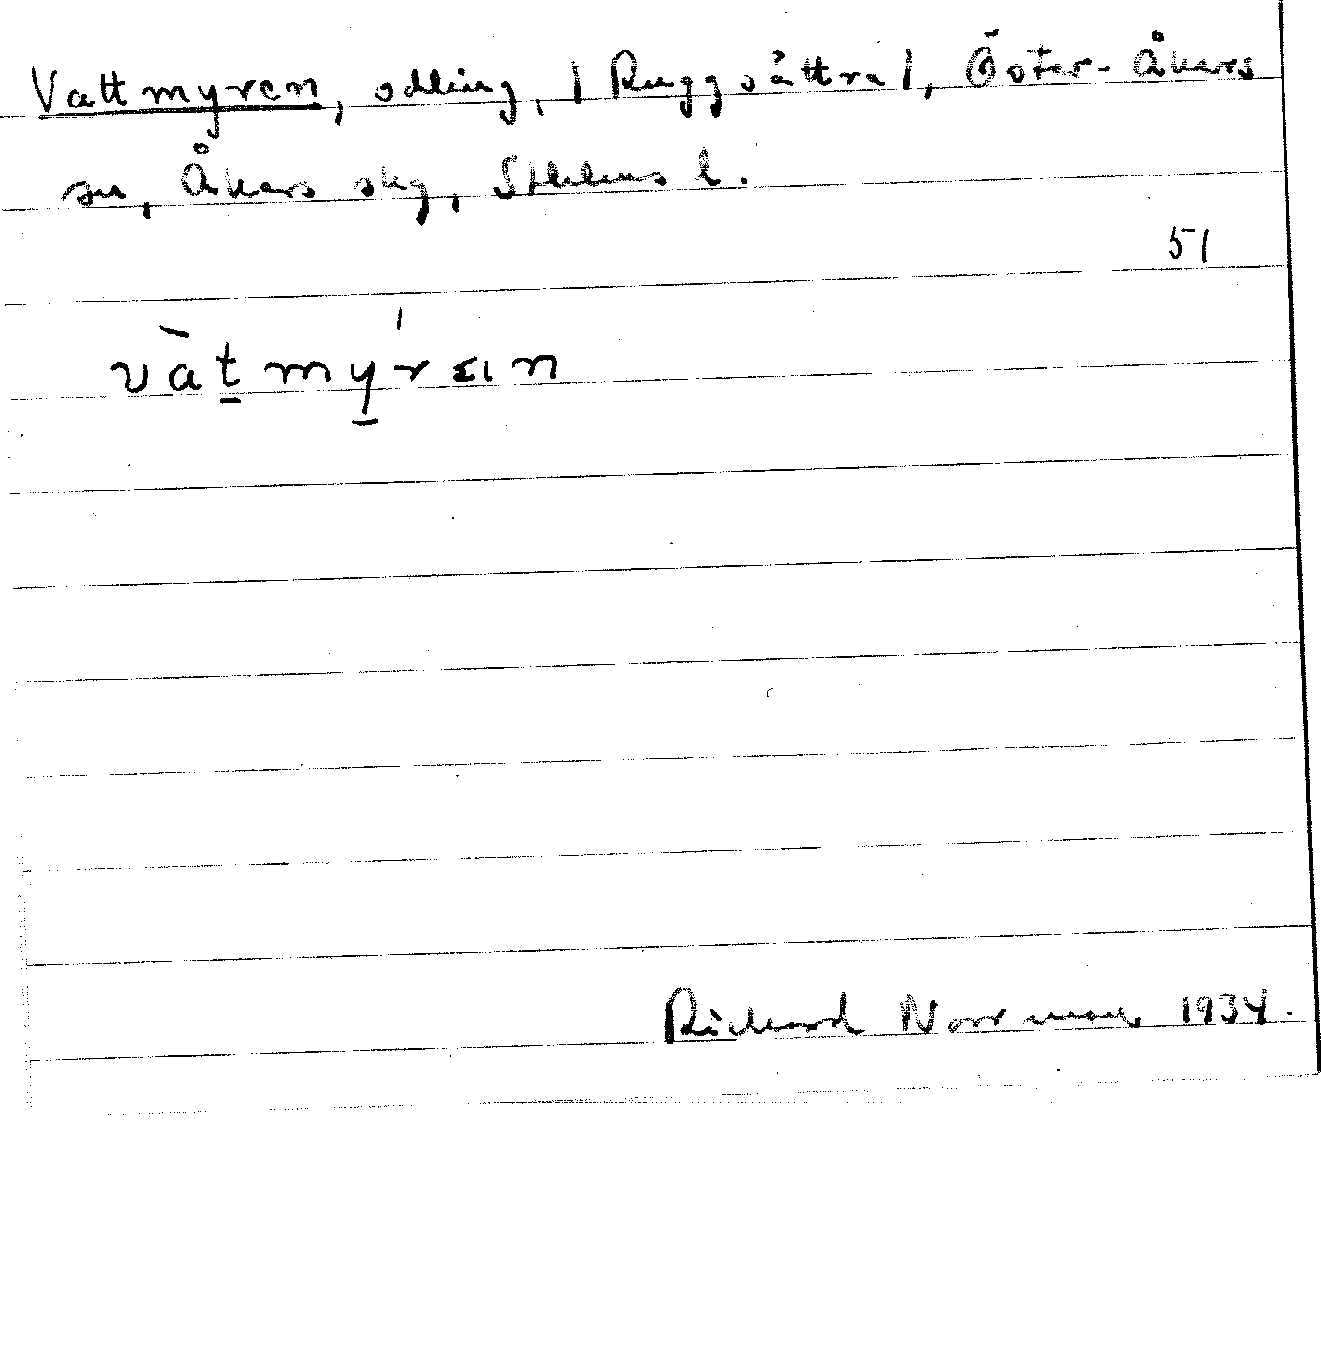 Vattmyren, odling, | Ruggsättra |, Öster-Åkers
sn, Åkers skg, Sthlms l.
51
vàt̲mý̲rɛın
Richard Norrman 1934.